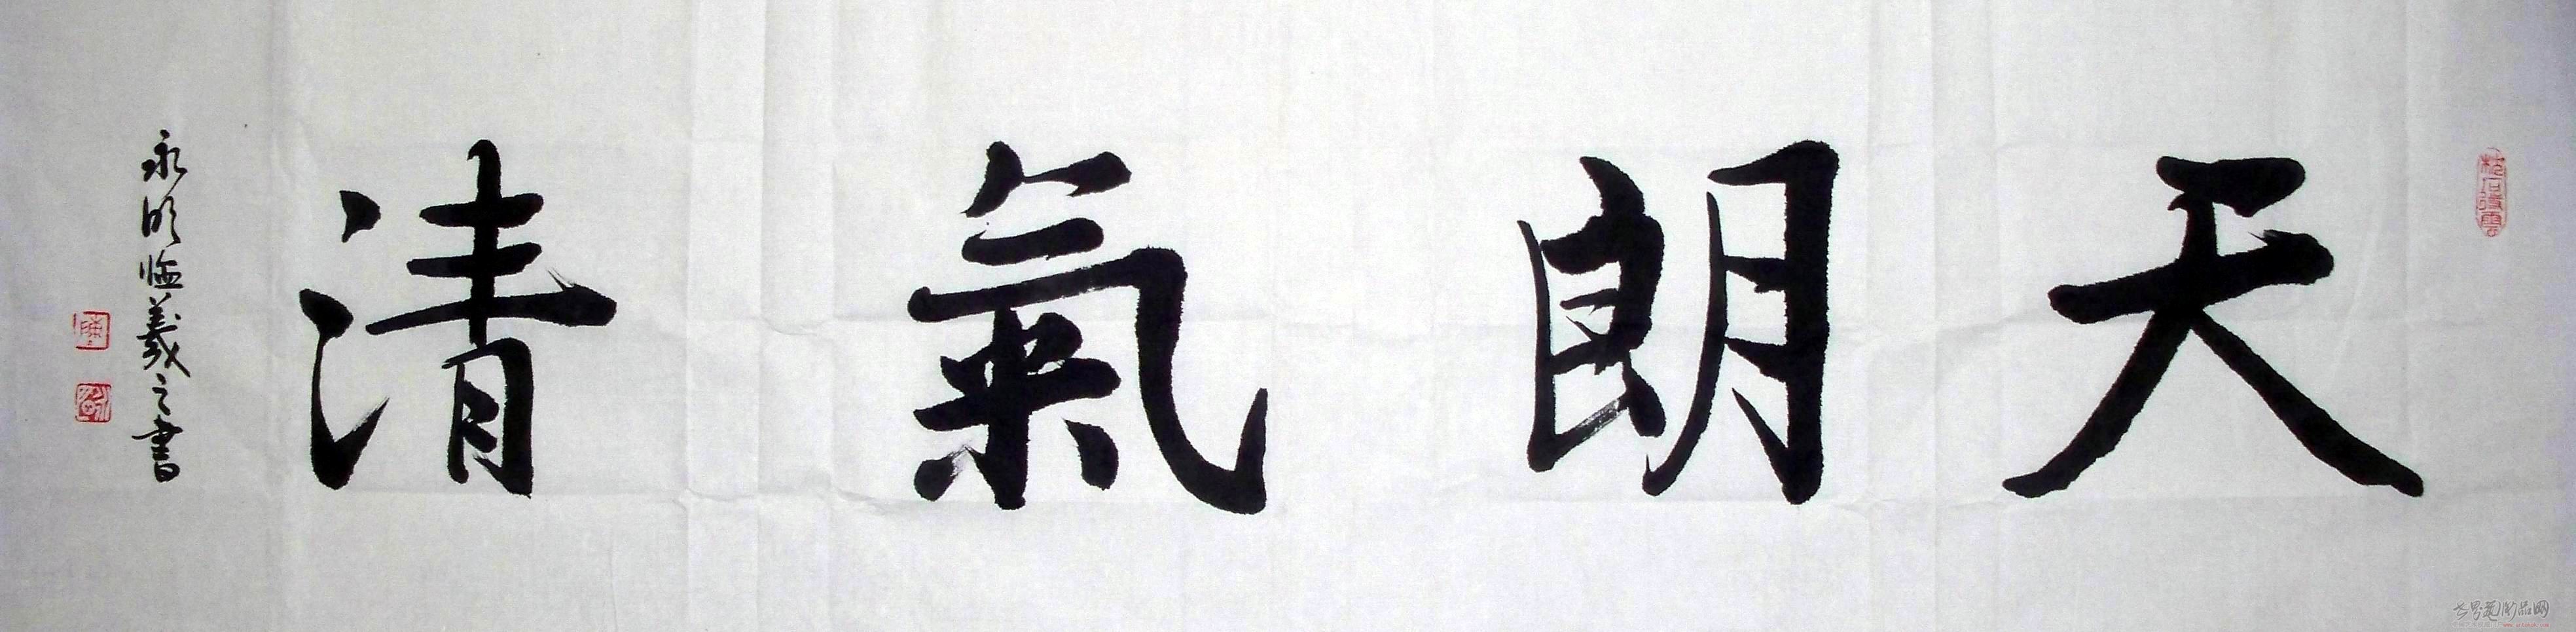 天朗氣清
永明臨羲之書